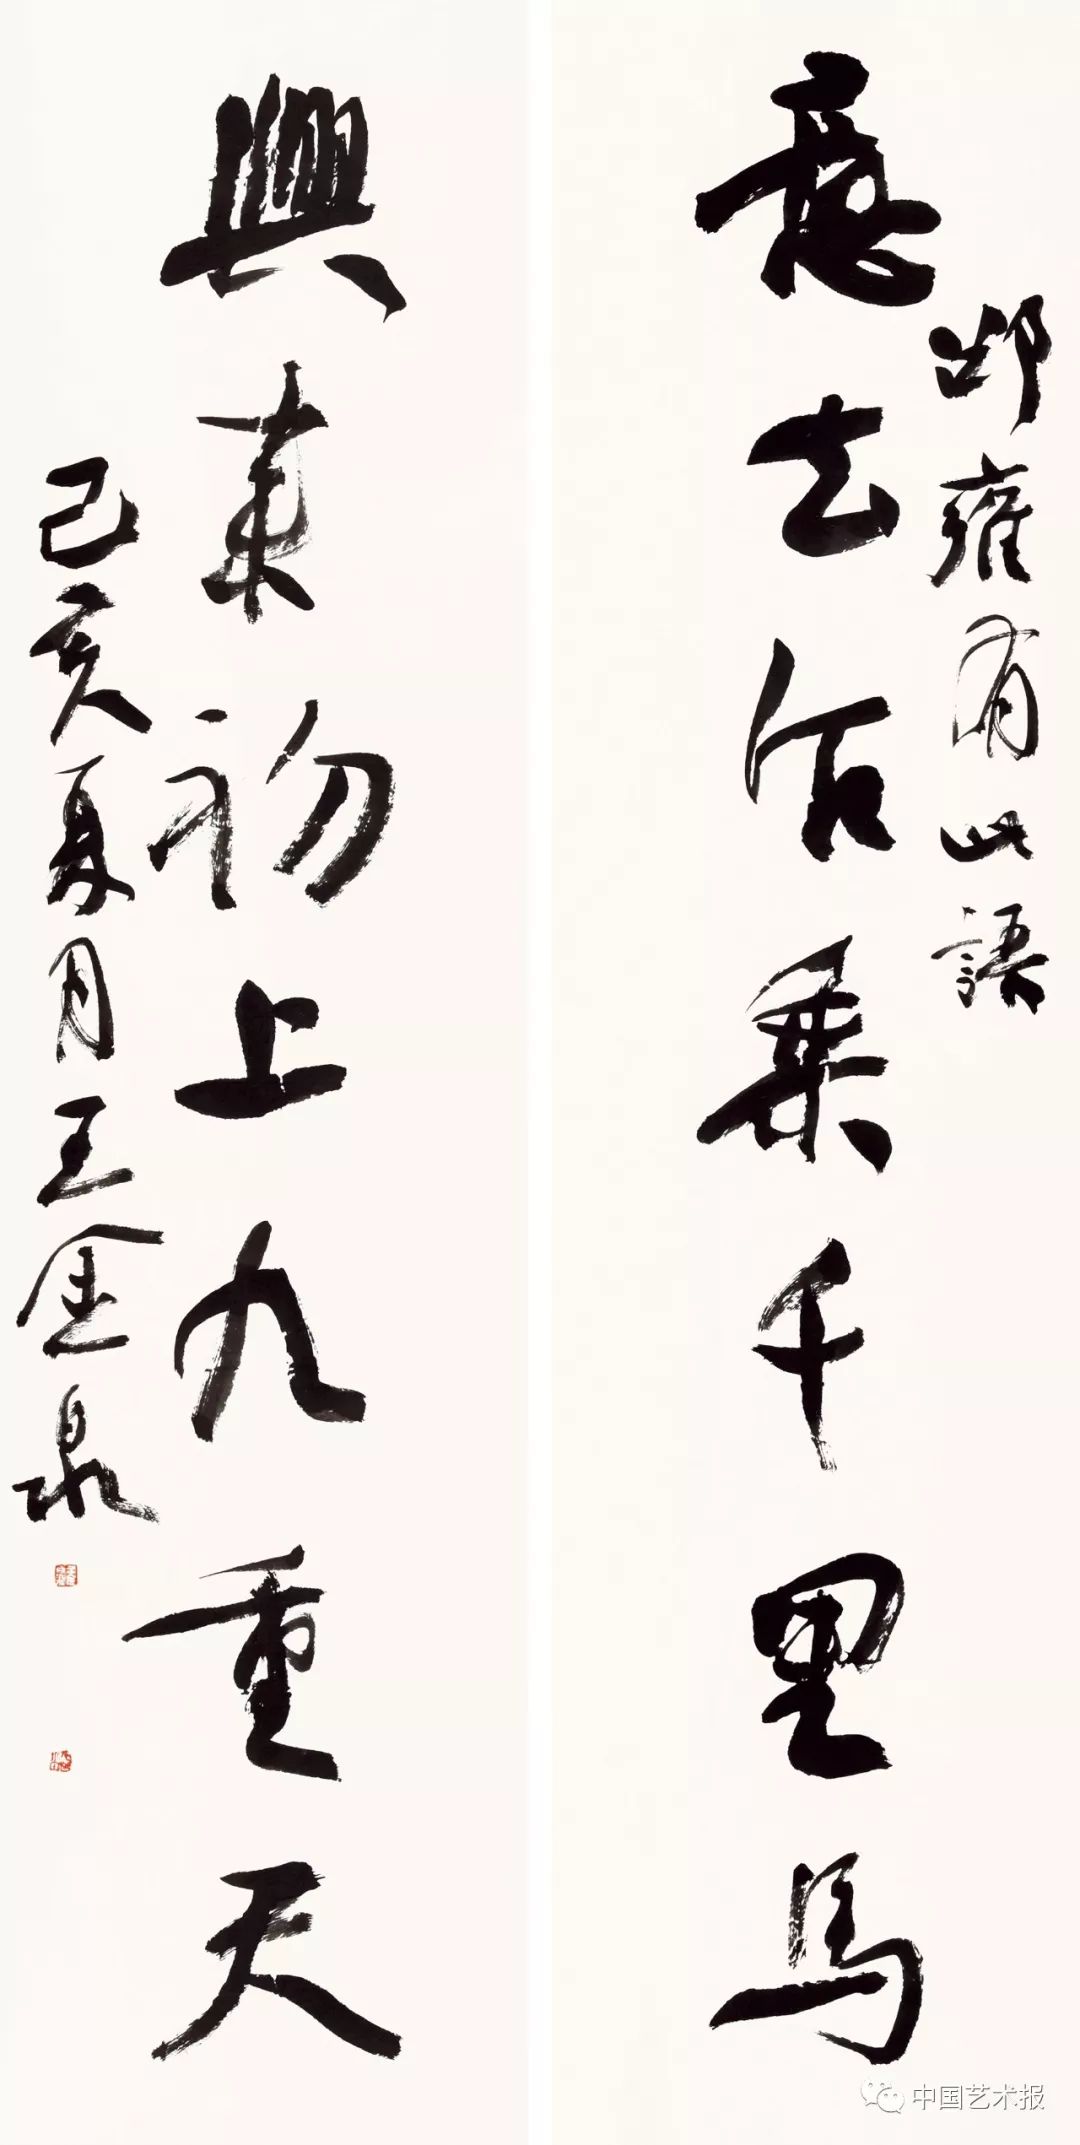 邵雍有此語
意去乍乘千里馬
興來初上九重天
己亥夏月王金泉
中国艺术报